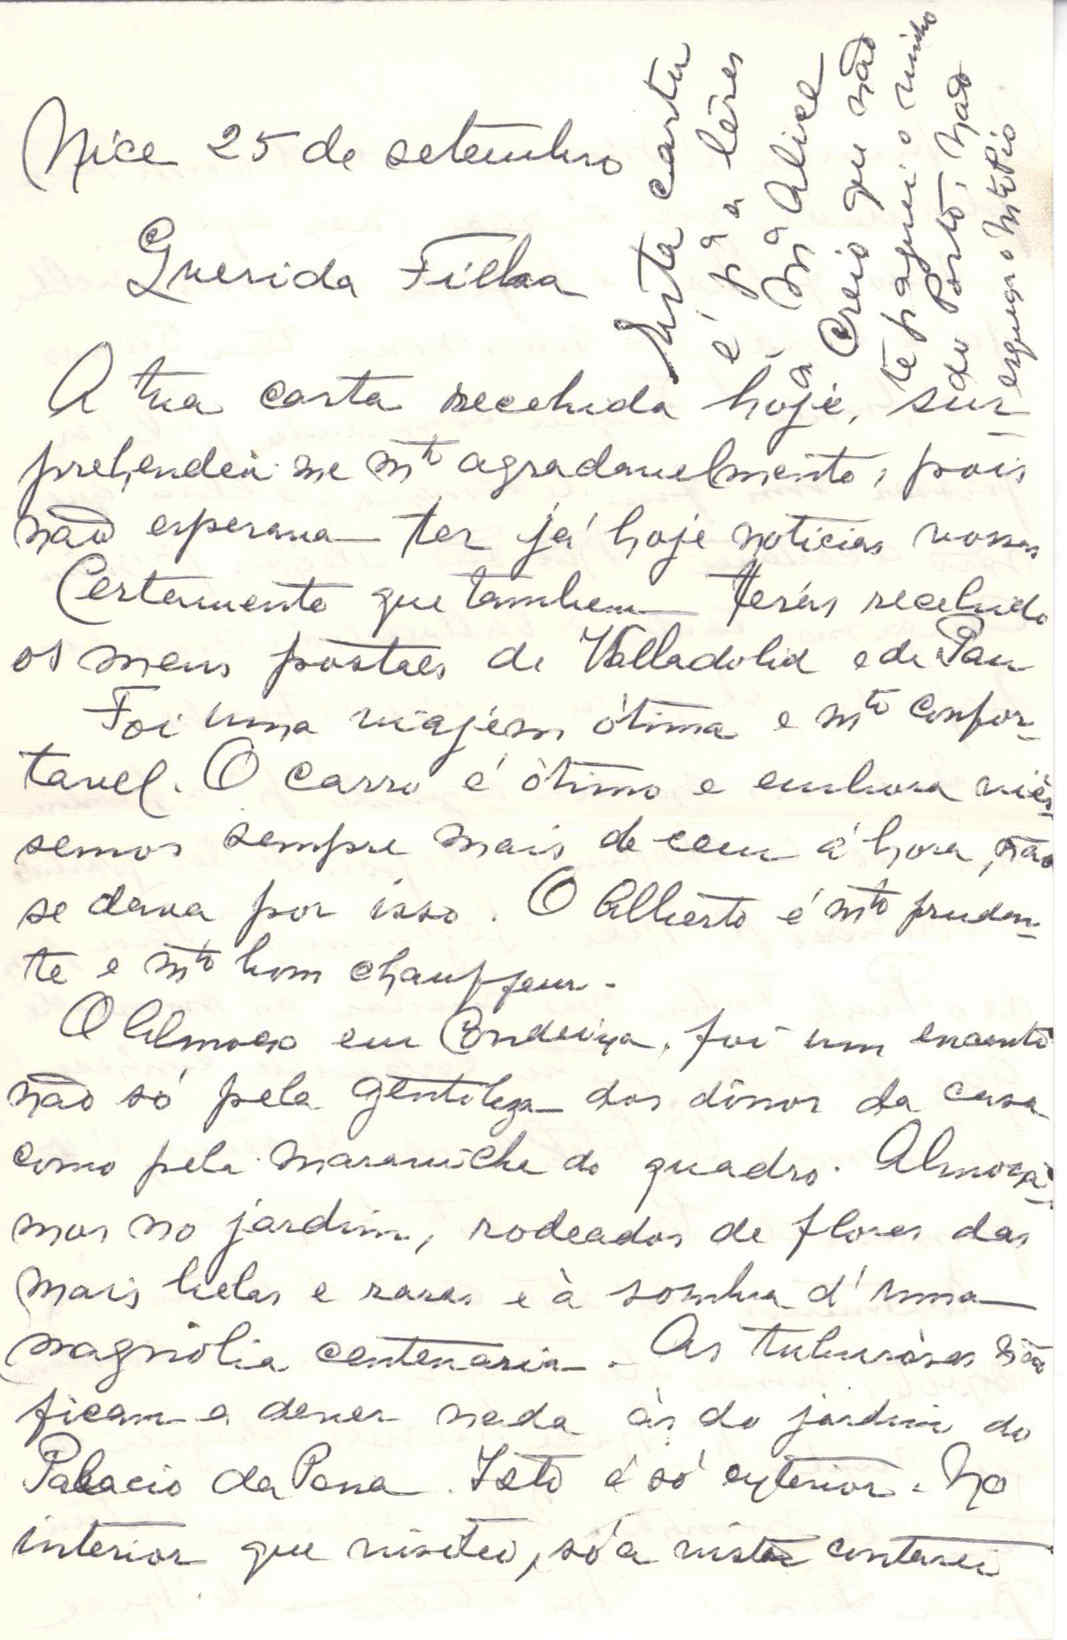 Nice 25 de setembro
Querida Filha
A tua carta recebida hoje, sur-
prehendeu-me mto agradavelmente, pois
não esperava ter já hoje noticias vossas
Certamente que tambem terás recebido
os meus postaes de Valladolid e de Pau
Foi uma viajem ótima e mto confor-
tavel. O carro é ótimo e embora viés-
semos sempre mais de cem á hora, não
se dava por isso. O Alberto é mto pruden-
te e mto bom chauffeur.
O Almoço em Condeixa, foi um encanto
não só pela gentileza dos dónos da casa
como pela maravilha do quadro. Almoçá-
mos no jardim, rodeados de flores das
mais belas e raras e à sombra d'uma
magnólia centenaria. As tuberosas não
ficam a dever nada ás do jardim do
Palacio da Pena. Isto é só exterior. No
interior que visitei, só á vista contarei
Esta carta
é pª a lêres
á Mª Alice
Creio que não
te paguei o vinho
do Porto, não
esqueça o